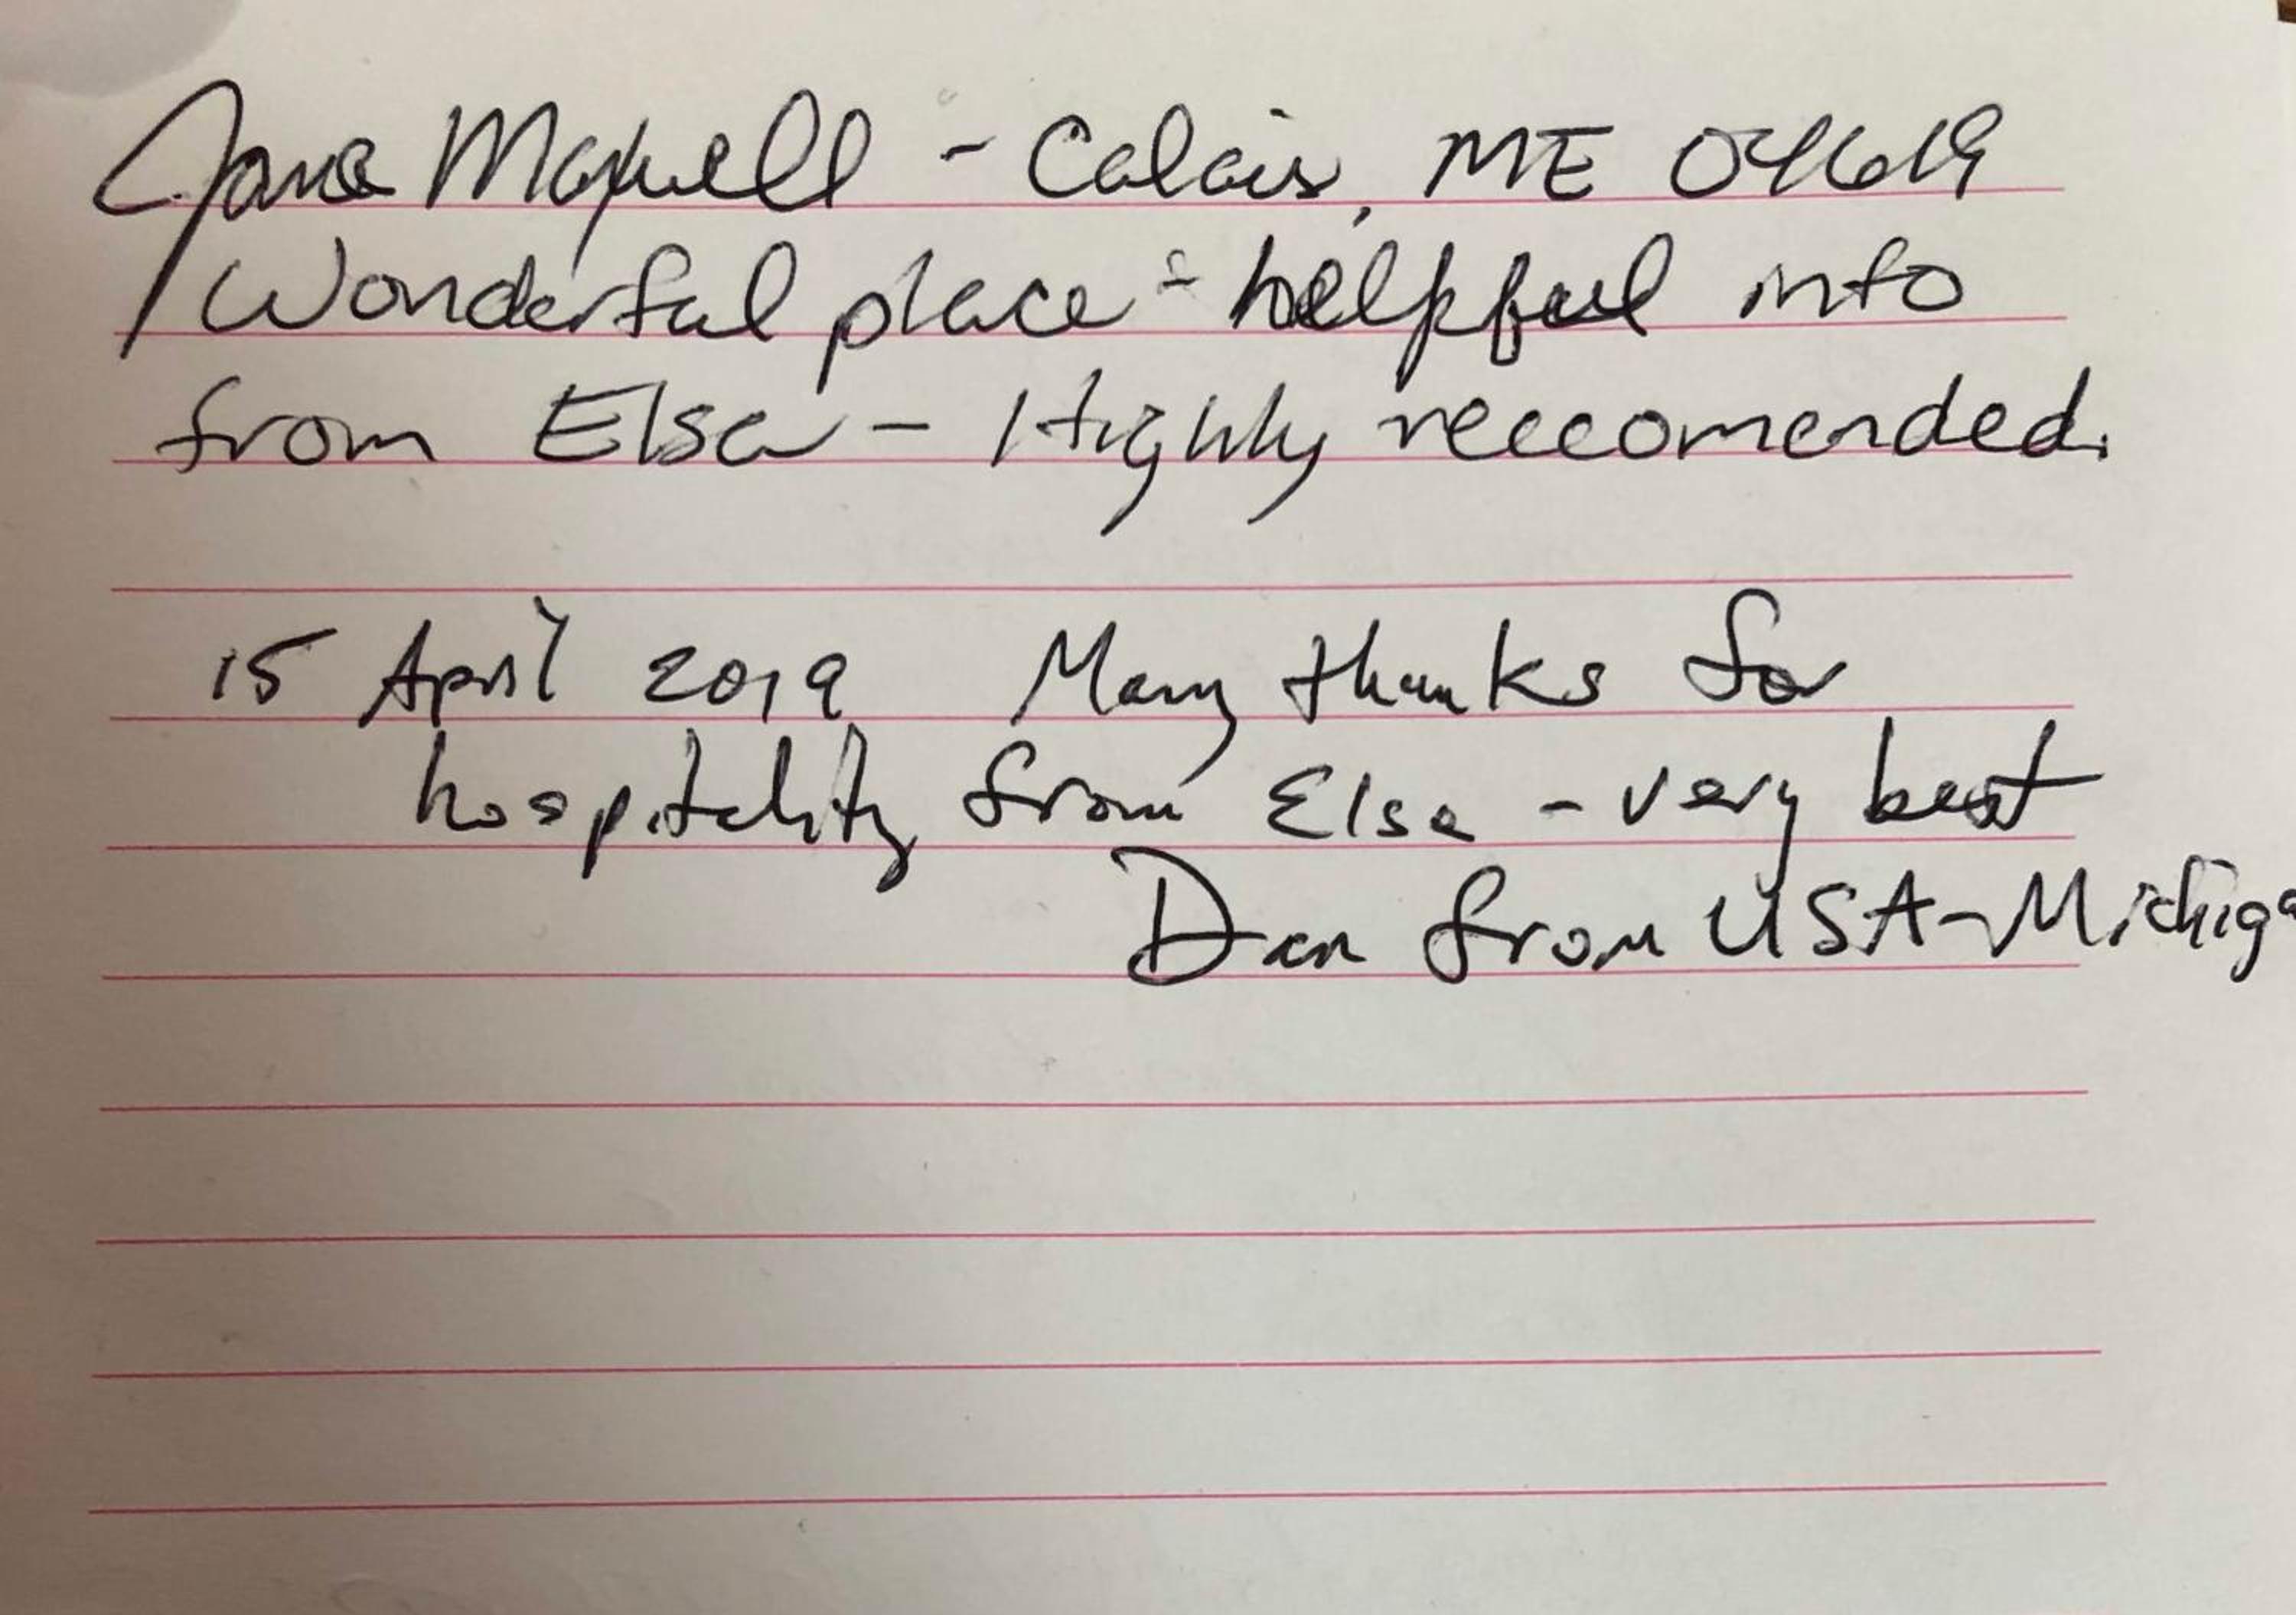 Jane Maxwell - Calais, ME 04619
Wonderful place - helpful info
from Elsa - Highly reccomended.
15 April 2019 Many thanks for
hospitality from Elsa - very best
Dan from USA-Michiga